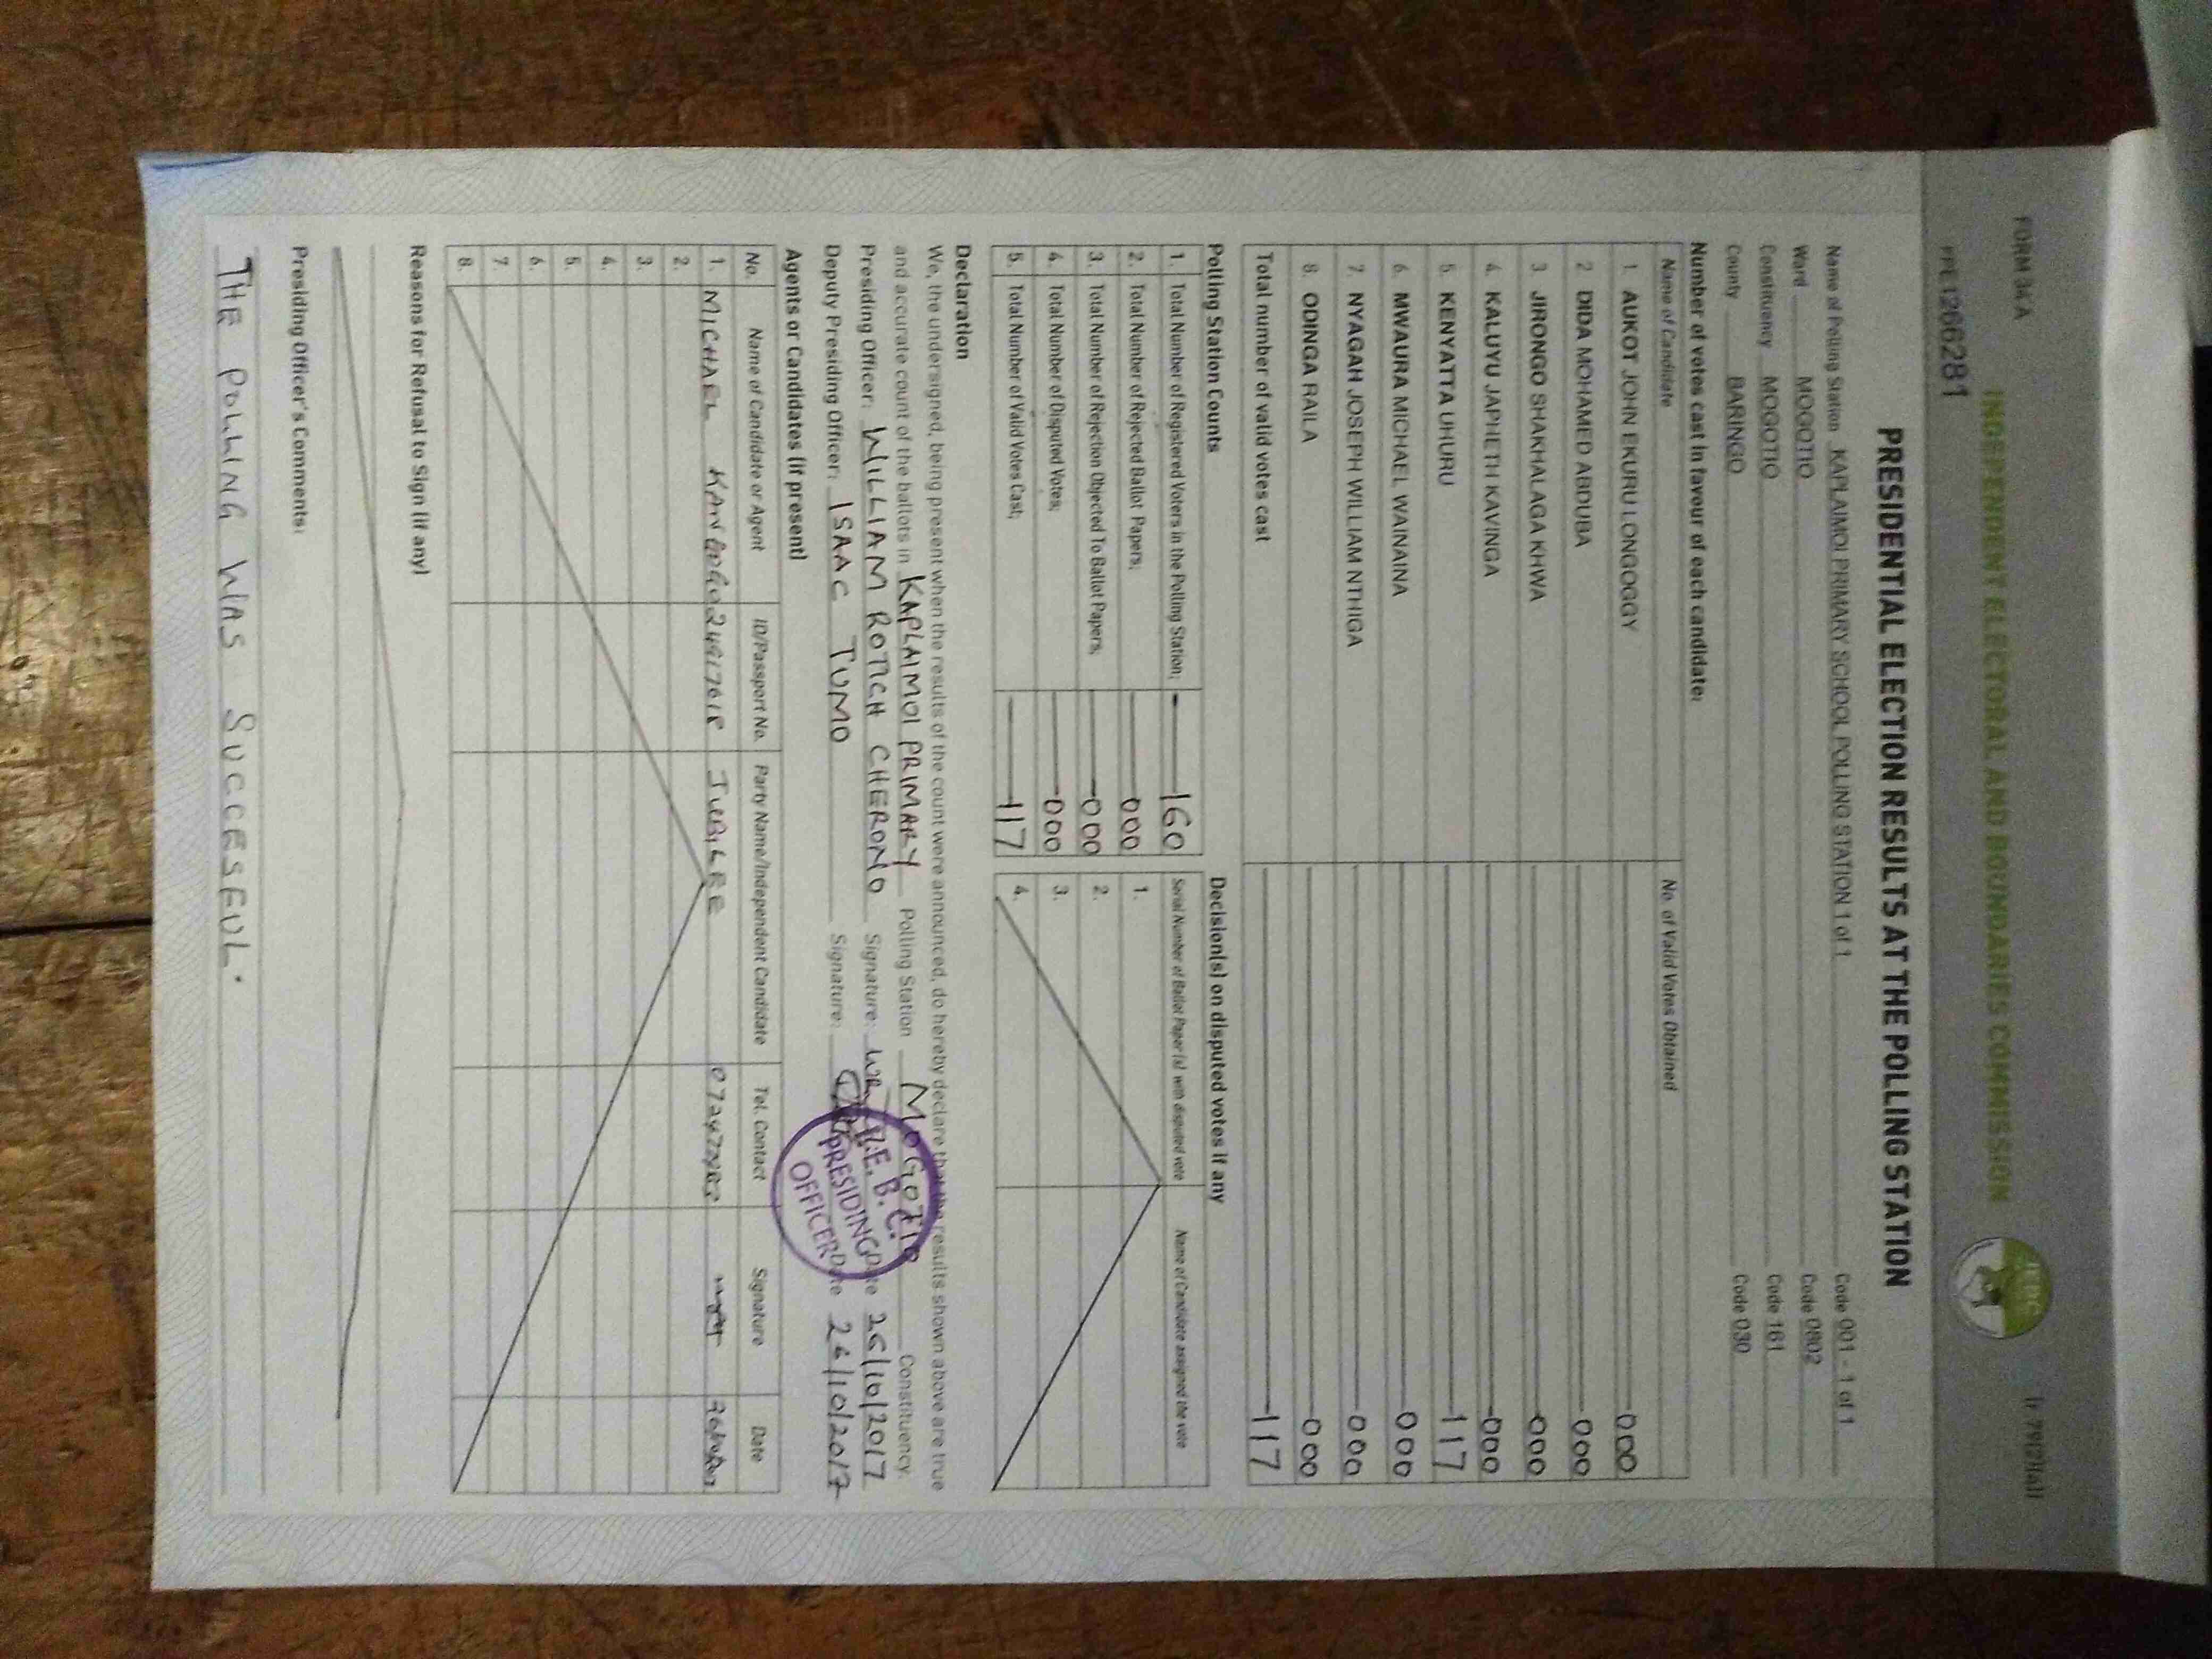 FORM 34A
INDEPENDENT ELECTORAL AND BOUNDARIES COMMISSION
IEBC
PRESIDENTIAL ELECTION RESULTS AT THE POLLING STATION
Name of Polling Station KAPLAIMOI PRIMARY SCHOOL POLLING STATION 1 of 1 Code 001 - 1 of 1
Ward MOGOTIO Code 0802
Constituency MOGOTIO Code 161
County BARINGO Code 030
Number of votes cast in favour of each candidate:
Name of Candidate No. of Valid Votes Obtained
1. AUKOT JOHN EKURU LONGOGGY 000
2 DIDA MOHAMED ABDUBA 000
3 JIRONGO SHAKHALAGA KHWA 000
4. KALUYU JAPHETH KAVINGA 000
5. KENYATTA UHURU 117
6. MWAURA MICHAEL WAINAINA 000
7. NYAGAH JOSEPH WILLIAM NTHIGA 000
8. ODINGA RAILA 000
Total number of valid votes cast 117
Polling Station Counts
1. Total Number of Registered Voters in the Polling Station; 160
2. Total Number of Rejected Ballot Papers; 000
3. Total Number of Rejection Objected To Ballot Papers; 000
4. Total Number of Disputed Votes; 000
5. Total Number of Valid Votes Cast; 117
Decision(s) on disputed votes if any
Serial Number of Ballot Paper(s) with disputed vote Name of Candidate assigned the vote
1.
2.
3.
4.
Declaration
We, the undersigned, being present when the results of the count were announced, do hereby declare that the results shown above are true
and accurate count of the ballots in KAPLAIMOI PRIMARY Polling Station MOGOTIO Constituency.
Presiding Officer: WILLIAM ROTICH CHERONO Signature: Date 26/10/2017
Deputy Presiding Officer: ISAAC TUMO Signature: Date 26/10/2017
I.E.B.C.
PRESIDING
OFFICER
Agents or Candidates (if present)
No. Name of Candidate or Agent ID/Passport No. Party Name/Independent Candidate Tel. Contact Signature Date
1. MICHAEL JUBILEE
2.
3.
4.
5.
6.
7.
8.
Reasons for Refusal to Sign (if any)
Presiding Officer's Comments:
THE POLLING WAS SUCCESFUL.